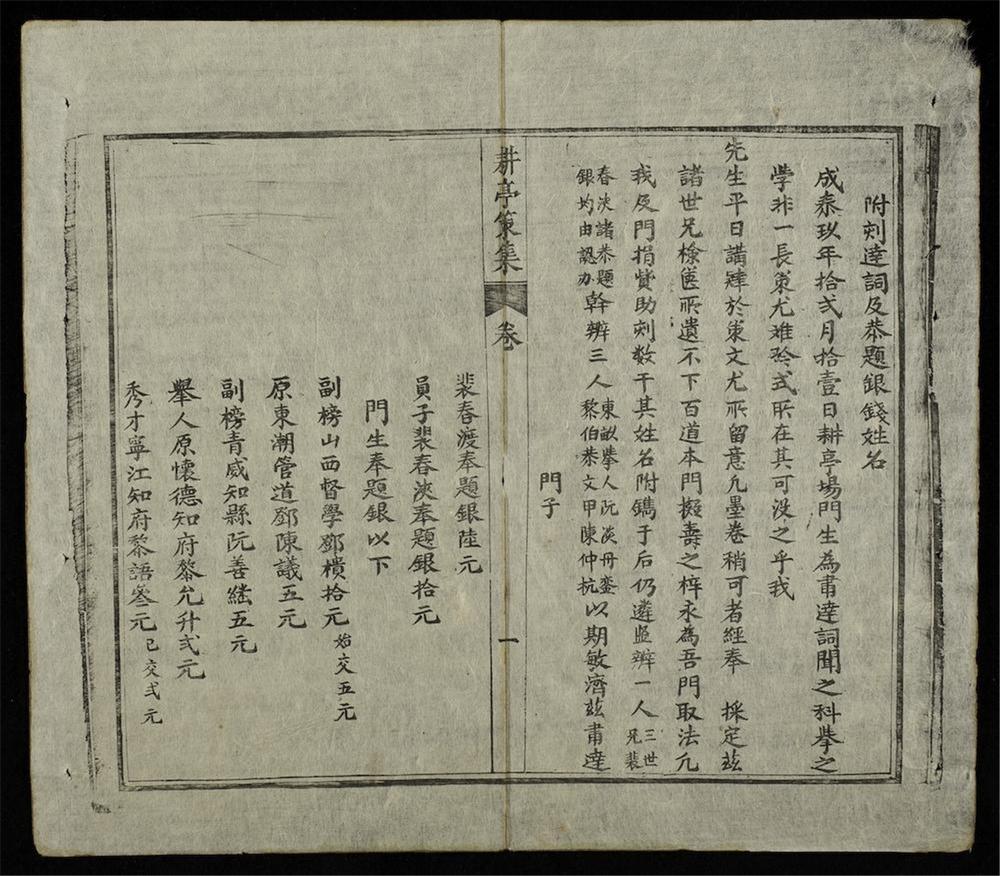 附刻達詞及恭題銀錢姓名
成泰玖年拾弍月拾壹日耕亭場門生為肅達詞聞之科舉之
學非一長策尤难矜式所在其可没之乎我
先生平日講肄於策文尤所留意凢墨卷稍可者經奉 採定茲
諸世兄檢篋所遺不下百道本門擬壽之梓永為吾門取法凢
我及門捐貲助刻数干其姓名附鐫于后仍遴監辨一人三世兄裴
春渼諸恭題銀均由認办幹辨三人東畝舉人阮淡冊鑾黎伯恭文甲陳仲杭以期敏濟茲肅達
門子
耕亭策集 卷 一
裴春渡奉題銀陸元
員子裴春渼奉題銀拾元
門生奉題銀以下
副榜山西督學鄧積拾元始交五元
原東潮管道鄧陳議五元
副榜青威知縣阮善繼五元
舉人原懷德知府黎允升弍元
秀才寧江知府黎語叄元已交弍元